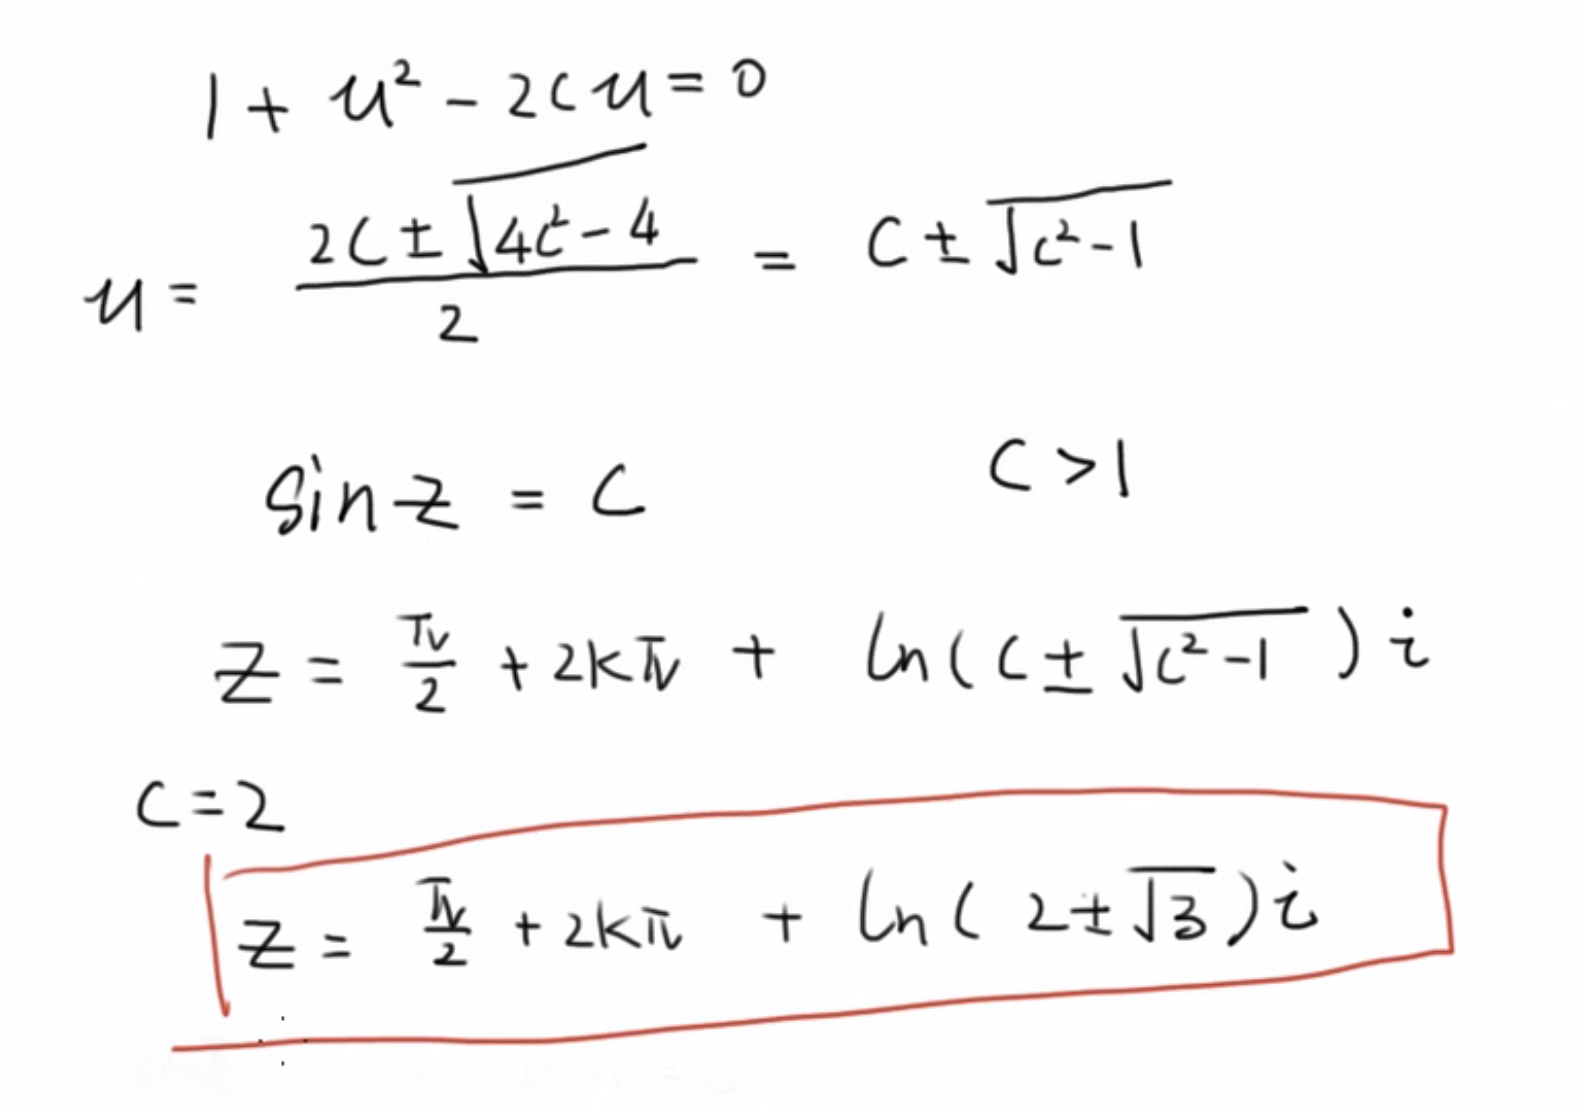 1 + u² - 2cu = 0
u = (2c ± √(4c² - 4)) / 2 = c ± √(c² - 1)
sin z = c    c > 1
z = π/2 + 2kπ + ln(c ± √(c² - 1)) i
c = 2
z = π/2 + 2kπ + ln(2 ± √3) i